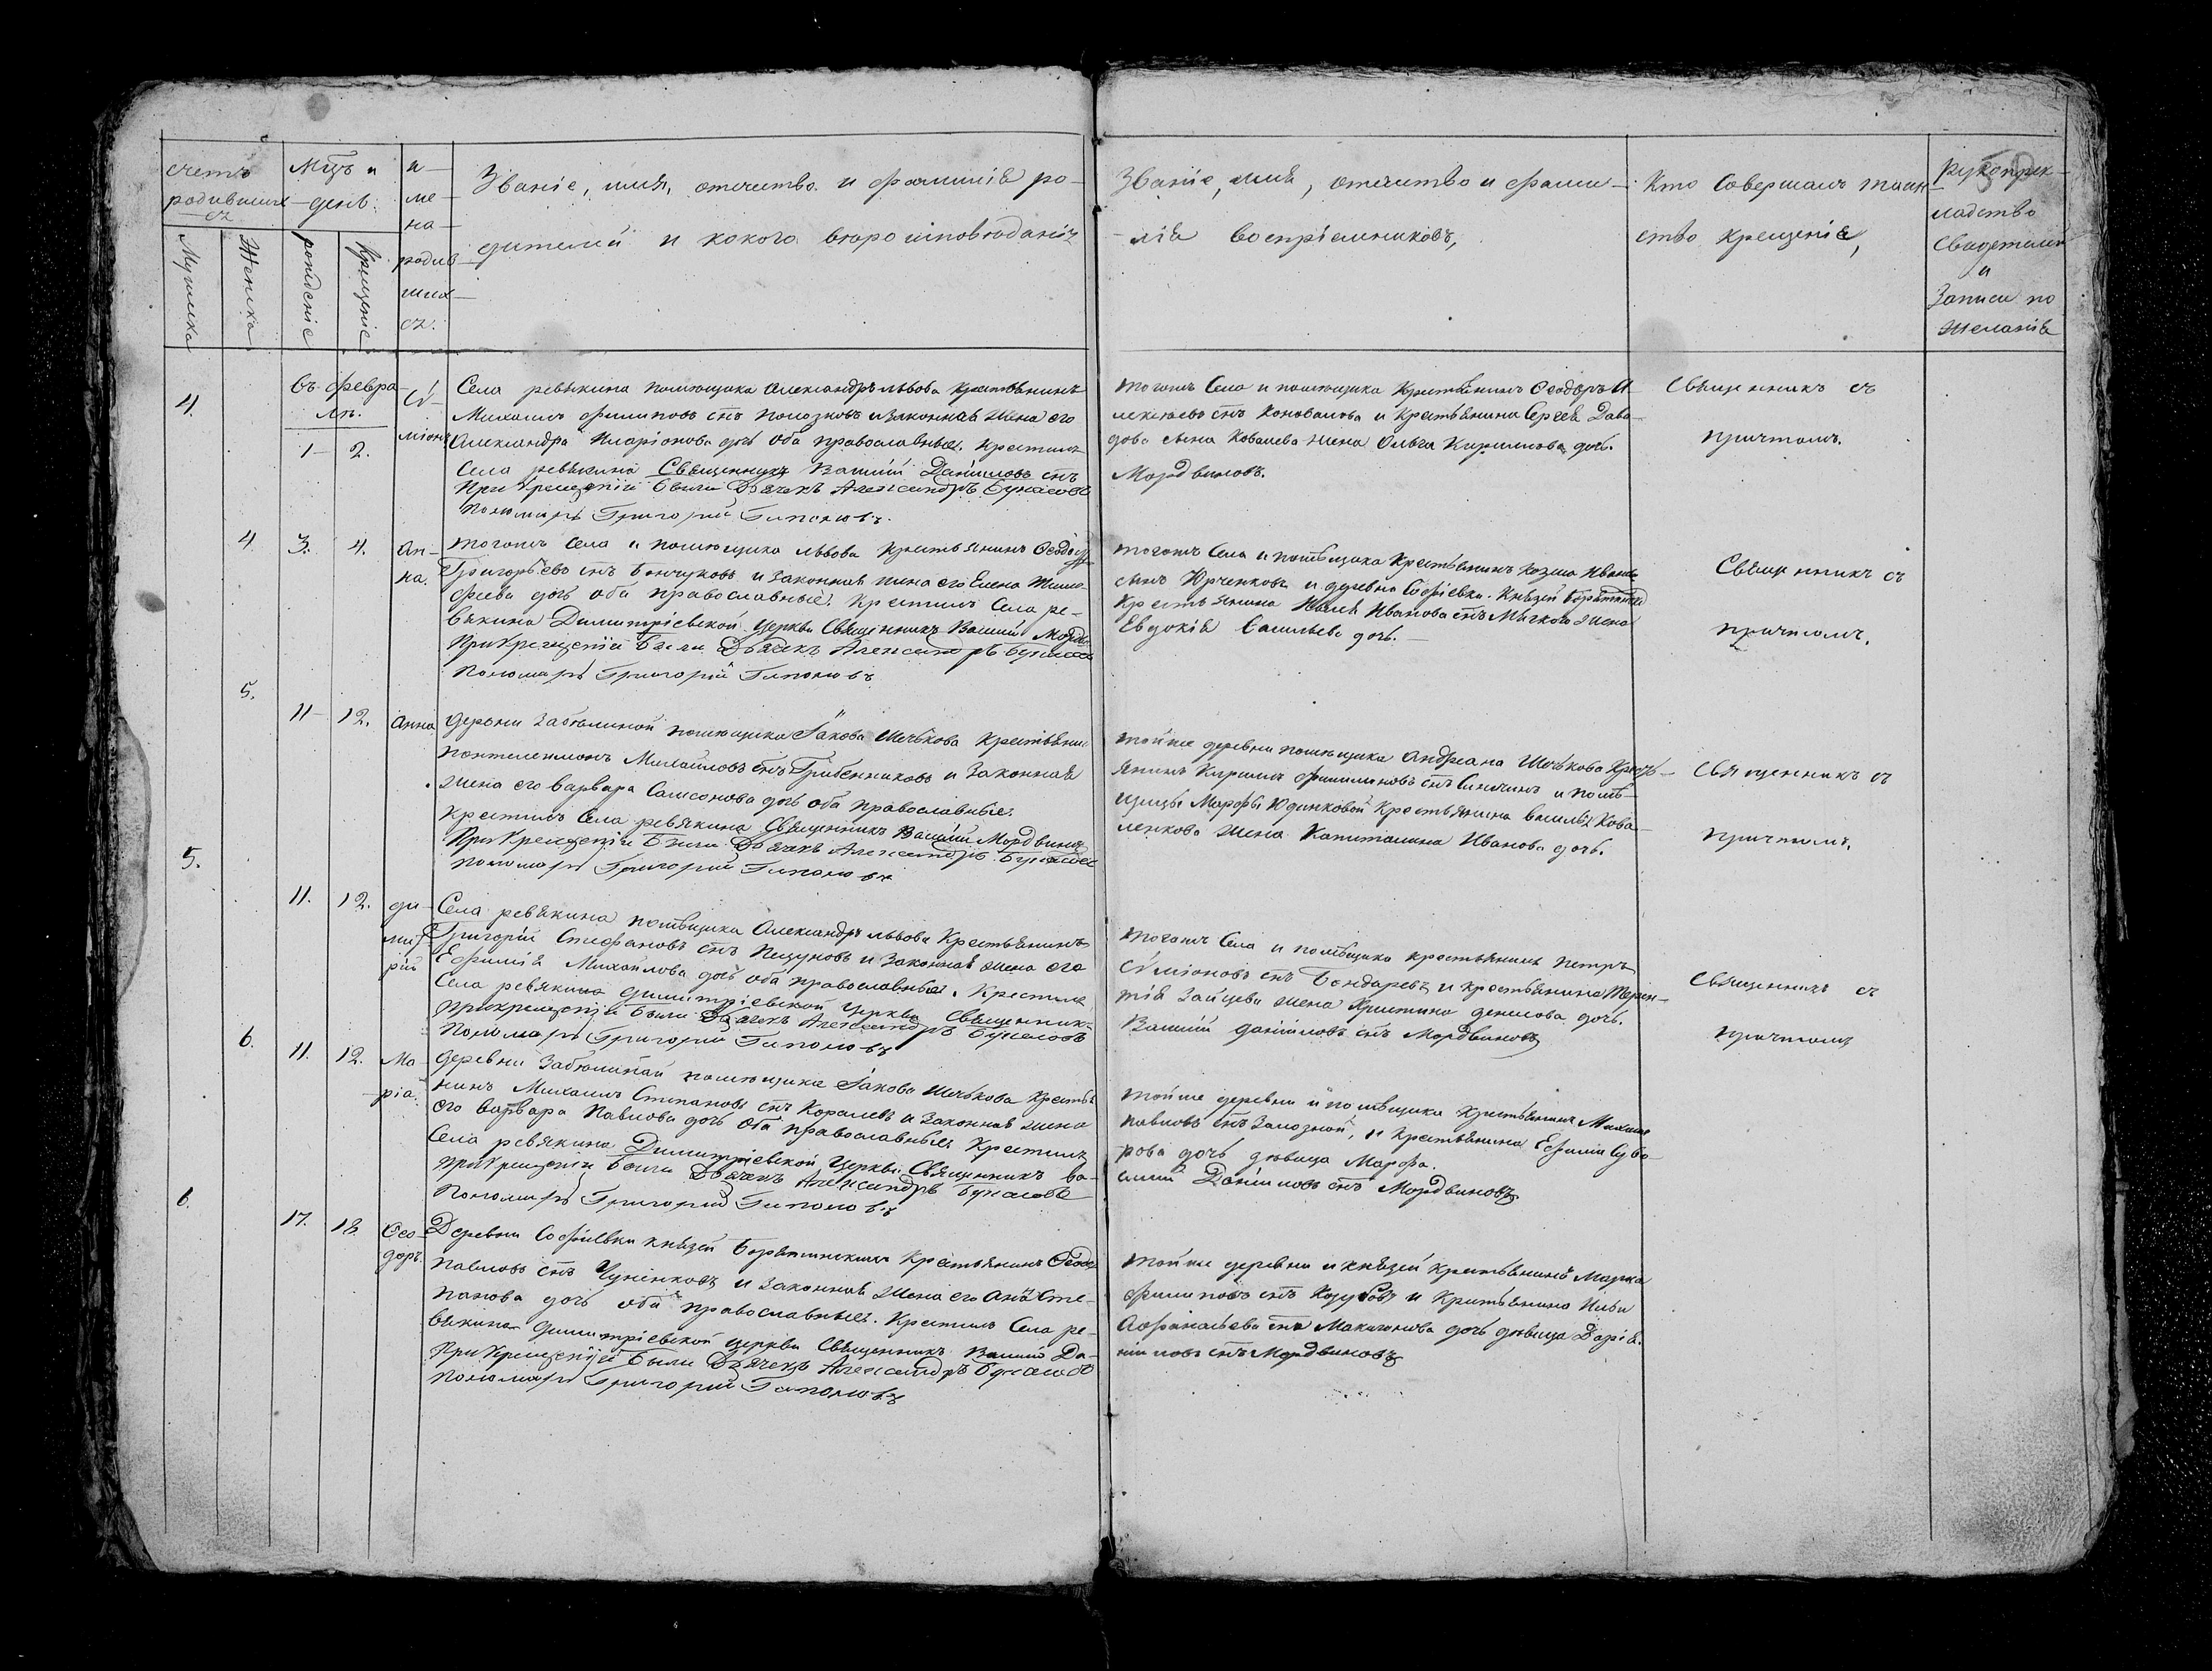 счетъ
родившихся
Мцъ и
день.
Мужеска
Женска
рожденіе
крещеніе
и-
ме-
на-
родив
ших-
ся.
Званіе, имя, отечество и фамилія ро-
дителей и какого вероисповюданія
Званіе, имя, отечество и фами-
-лія воспріемниковъ,
Кто совершалъ таин
ство крещенія,
рукоприк-
ладство
свидетелей
и
записи по
желанія
4.
въ февра-
лѣ.
1- 2.
Сѵ-
міонъ
Села ревякина помющика Александръ львова крестьянинъ
Михаилъ филиповъ снъ и законная жена его
Александра Иларіонова дочь оба православные. Крестилъ
Села ревякина Священникъ Василій Даніиловъ снъ
При крещеніи были Дьячекъ Александръ
Пономарь Григорій
тогожъ Села и помющика Крестьянинъ Ѳеодоръ А-
лексѣевъ снъ Коновалова и Крестьянина Сергея Давы-
дова сына Ковалева жена Ольга Кирилова дочь.
Мордвиновъ.
Священникъ съ
причтомъ.
4 3. 4. Ан-
на.
тогожъ Села и помющика львова крестьянинъ
Григорьевъ снъ и законная жена его Елена Тимо-
феева дочь оба православные. Крестилъ Села ре-
вякина Димитріевской церкви Священникъ Василій
При крещеніи были Дьячекъ Александръ
Пономарь Григорій
тогожъ Села и помѣщика Крестьянинъ Козма Иванов
сынъ Юрченкова и деревни Софіевки Князей
Крестьянина Иванова снъ жена
Евдокія Васильева дочь.-
Священникъ съ
причтомъ.
5. 11- 12. Анна
деревни Забѣлиной помющика Іакова Шечкова крестьянин
Пантелеимонъ Михайловъ снъ Грибенниковъ и законная
жена его варвара Самсонова дочь оба православные.
Крестилъ Села ревякина Священникъ Василій Мордвиновъ
При крещеніи были Дьячекъ Александръ
Пономарь Григорій
тойже деревни помющика Андреана Шечкова Крест-
янинъ Кирилъ филимоновъ снъ и помѣ-
щицы Марфы Юдинковой Крестьянина василья Кова-
ленкова жена Капиталина Иванова дочь.
Священникъ съ
причтомъ.
5. 11. 12. ди-
мит
рій
Села ревякина помѣщика Александръ львова Крестьянинъ
Григорій Стефановъ снъ Пецуновъ и законная жена его
Ефимія Михайлова дочь оба православные. Крестилъ
Села ревякина димитріевской церкви Священникъ
При крещеніи были Дьячекъ Александръ
Пономарь Григорій
тогожъ Села и помѣщика крестьянинъ Петръ
Сѵміоновъ снъ Бондаревъ и крестьянина Терен-
тія Зайцева жена Христина денисова дочь.
Василій даніиловъ снъ Мордвиновъ
Священникъ съ
причтомъ
6. 11. 12. Ма-
рія.
деревни Забюлиной помющика Іакова Шечкова крестья
нинъ Михаилъ Стипановъ снъ Королевъ и законная жена
его варвара Павлова дочь оба православные Крестилъ
Села ревякина Димитріевской церкви Священникъ ва-
При крещеніи были Дьячекъ Александръ
Пономарь Григорій
тойже деревни и помѣщика крестьянинъ Михаил
павловъ снъ Залозной, и крестьянина Ефима
рова дочь дювица Марфа.
силій Даніиловъ снъ Мордвиновъ
6. 17. 18. Ѳео-
доръ.
Деревни Софіевки князей Борятинскихъ крестьянинъ Ѳеодор
павловъ снъ и законная жена его Анна Сте-
панова дочь оба православные. Крестилъ Села ре-
вякина димитріевской церкви Священникъ Василій Да-
При крещеніи были Дьячекъ Александръ
Пономарь Григорій
тойже деревни и князей крестьянинъ Марка
филиповъ снъ и Крестьянина Ильи
Афанасьева сна дочь дювица Дарія.
ніиловъ снъ Мордвиновъ